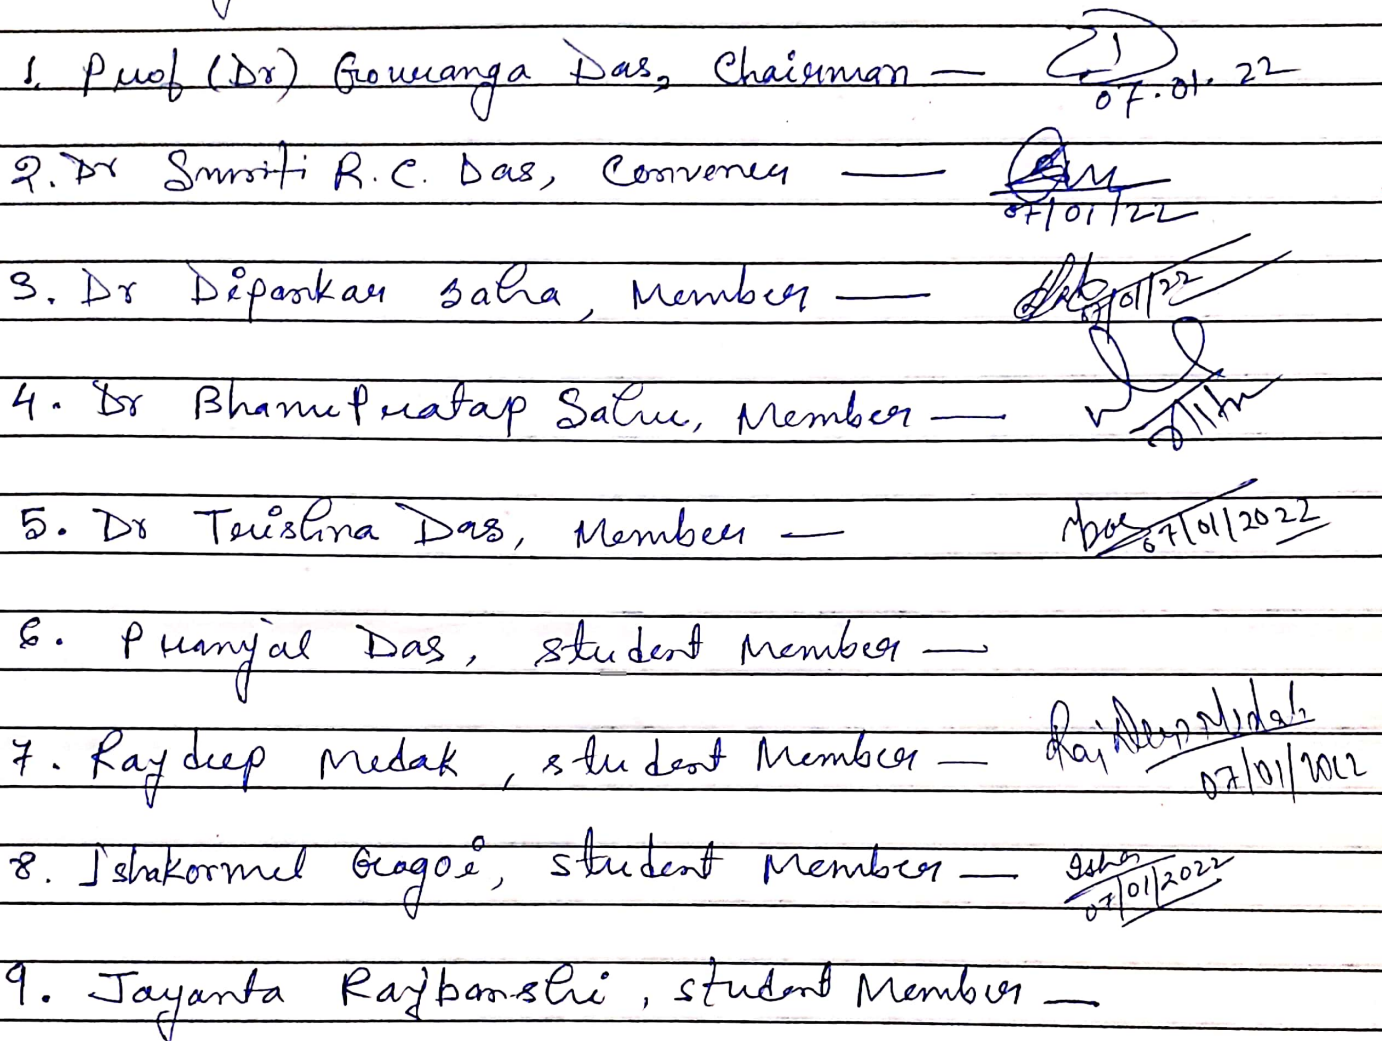 1. Prof (Dr) Gouranga Das, Chairman — 07.01.22
2. Dr Smriti R.C. Das, Convener — 07/01/22
3. Dr Dipankar Saha, Member — 07/01/22
4. Dr Bhanu Pratap Sahu, Member —
5. Dr Trishna Das, Member — 07/01/2022
6. Pranjal Das, student Member —
7. Raydeep Medak, student Member — Rajdeep Medak 07/01/2022
8. Ishakormel Gogoi, student Member — Isha 07/01/2022
9. Jayanta Rajbanshi, student Member —